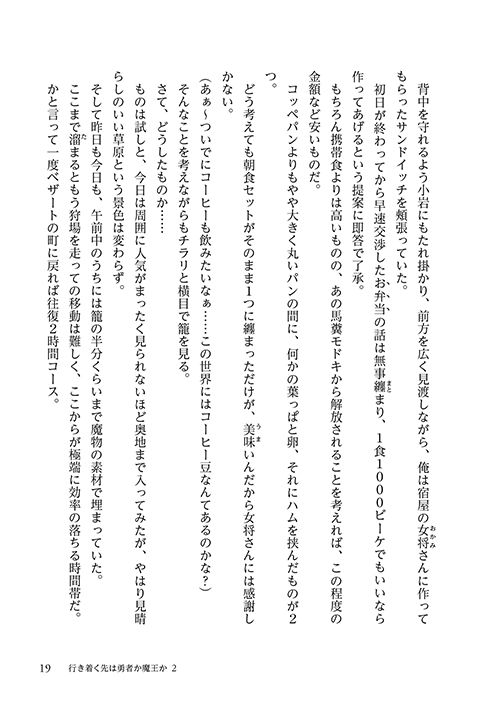 背中を守れるよう小岩にもたれ掛かり、前方を広く見渡しながら、俺は宿屋の女将さんに作って
もらったサンドイッチを頬張っていた。
初日が終わってから早速交渉したお弁当の話は無事纏まり、1食1000ビーケでもいいなら
作ってあげるという提案に即答で了承。
もちろん携帯食よりは高いものの、あの馬糞モドキから解放されることを考えれば、この程度の
金額など安いものだ。
コッペパンよりもやや大きく丸いパンの間に、何かの葉っぱと卵、それにハムを挟んだものが2
つ。
どう考えても朝食セットがそのまま1つに纏まっただけだが、美味いんだから女将さんには感謝し
かない。
(あぁ~ついでにコーヒーも飲みたいなぁ……この世界にはコーヒー豆なんてあるのかな?)
そんなことを考えながらもチラリと横目で籠を見る。
さて、どうしたものか……
ものは試しと、今日は周囲に人気がまったく見られないほど奥地まで入ってみたが、やはり見晴
らしのいい草原という景色は変わらず。
そして昨日も今日も、午前中のうちには籠の半分くらいまで魔物の素材で埋まっていた。
ここまで溜まるともう狩場を走っての移動は難しく、ここからが極端に効率の落ちる時間帯だ。
かと言って一度ベザートの町に戻れば往復2時間コース。
19 行き着く先は勇者か魔王か 2